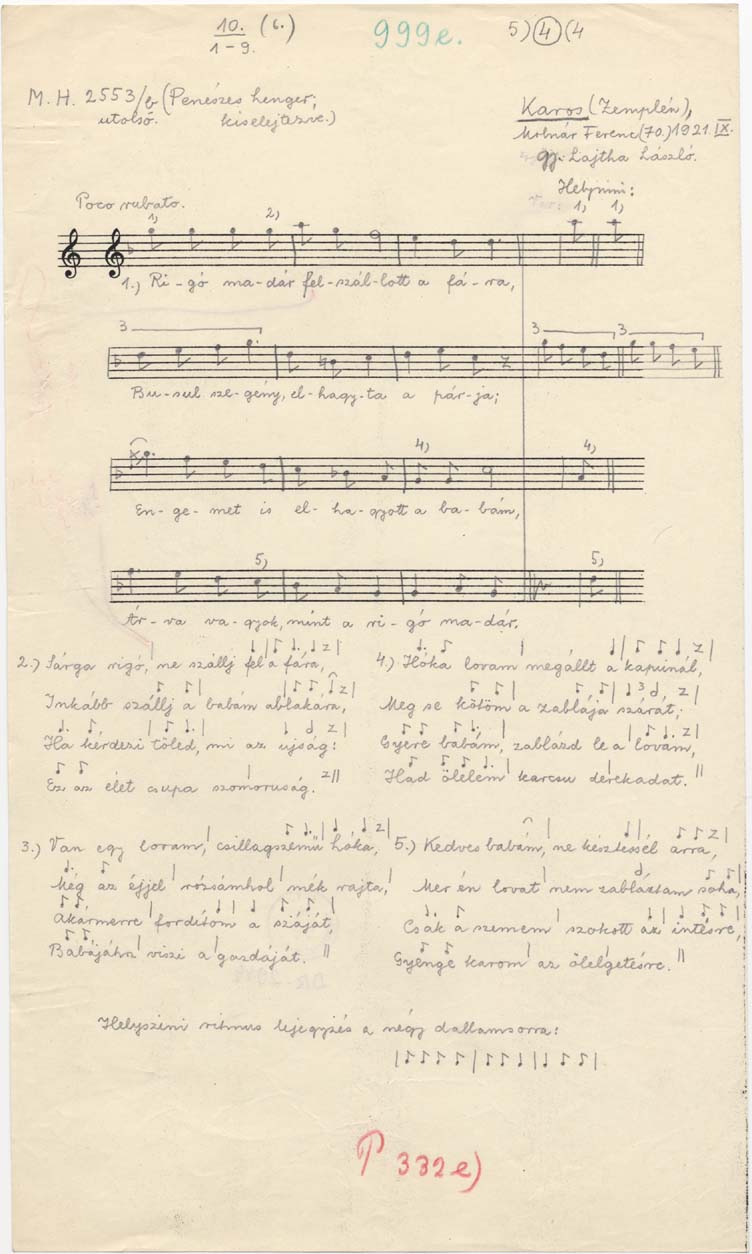 10. (6.)
1-9.
999e.
5) 4 (4
M. H. 2553/b (Penészes henger;
utolsó. kiselejtezve.)
Karos (Zemplén),
Molnár Ferenc (70.) 1921. IX.
gy. Lajtha László.
Helyszini:
Poco rubato.
1) 2) 1) 1)
1.) Ri-gó ma-dár fel-szál-lott a fá-ra,
3 3 3
Bu-sul sze-gény, el-hagy-ta a pár-ja;
4) 4)
En-ge-met is el-ha-gyott a ba-bám,
5) 5)
Ár-va va-gyok, mint a ri-gó ma-dár.
2.) Sárga rigó, ne szállj fel a fára,
Inkább szállj a babám ablakára,
Ha kérdezi tőled, mi az ujság:
Ez az élet csupa szomoruság.
4.) Hóka lovam megállt a kapuinál,
3
Meg se kötöm a zablája szárat;
Gyere babám, zablázd le a lovam,
Had ölelem karcsu derekadat.
3.) Van egy lovam, csillagszemü hóka,
Még az éjjel rózsámhol mék rajta,
Akármerre fordítom a száját,
Babájáhz viszi a gazdáját.
5.) Kedves babám, ne késztessél arra,
Mer én lovat nem zabláztam soha,
Csak a szemem szokott az intésre,
Gyenge karom az ölelgetésre.
Helyszini ritmus lejegyzés a négy dallamsorra:
P 332e)